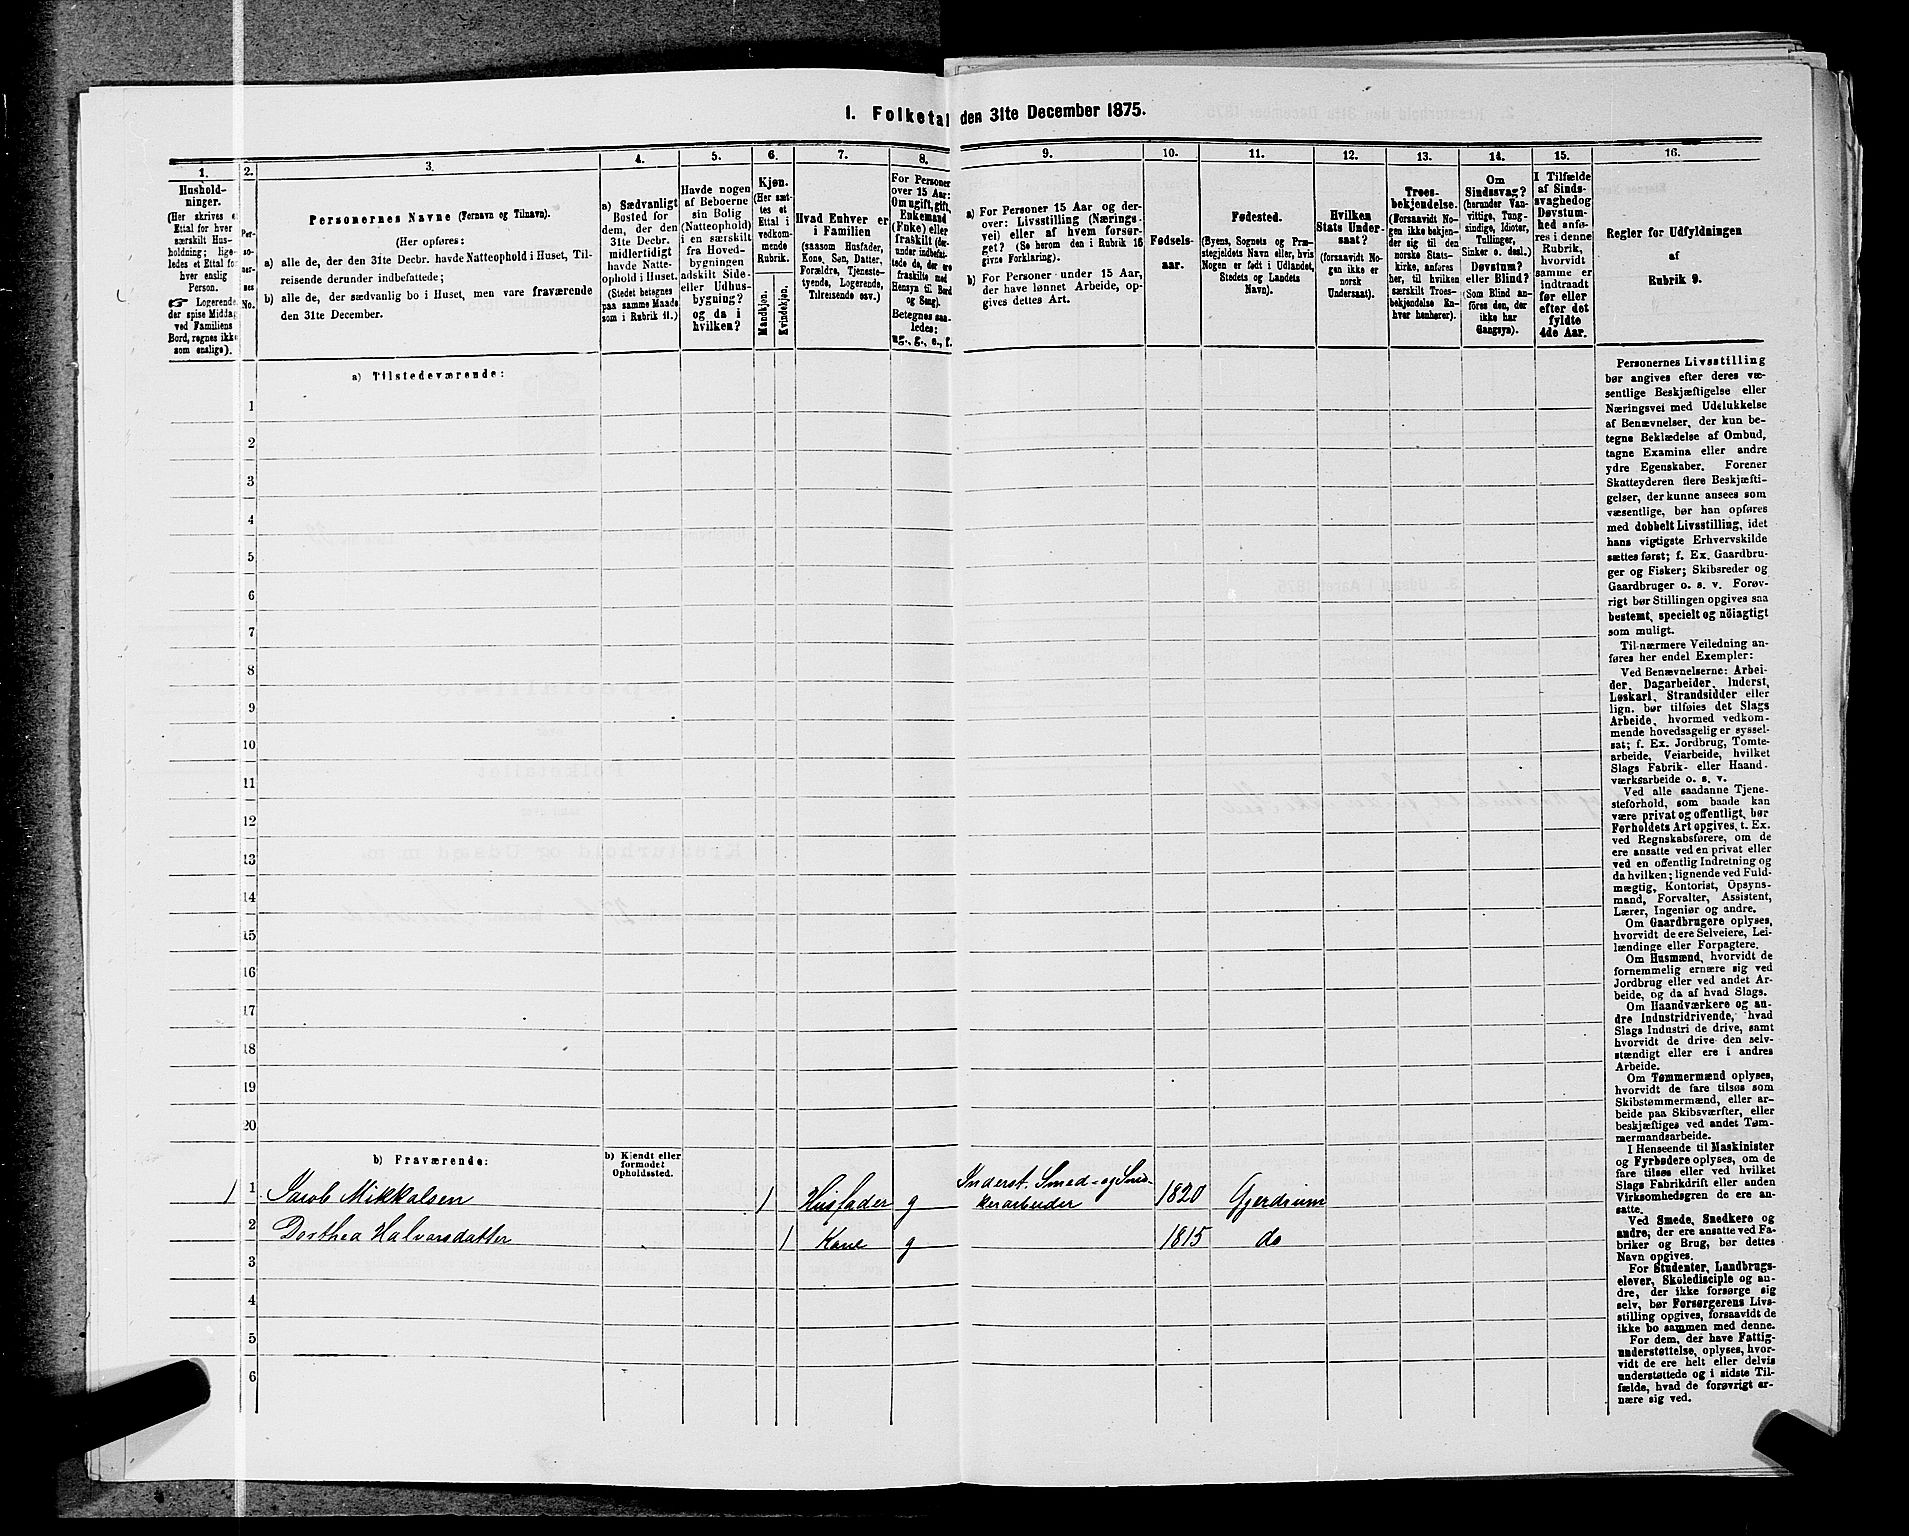 1. Folketal den 31te December 1875.
1.
Hushold-
ninger.
(Her skrives et
Ettal for hver
særskilt Hus-
holdning; lige-
ledes et Ettal for
hver enslig
Person.
☞ Logerende,
der spise Middag
ved Familiens
Bord, regnes ikke
som enslige).
2.
Per-
so-
ner-
nes
No.
3.
Personernes Navne (Fornavn og Tilnavn).
(Her opføres:
a) alle de, der den 31te Decbr. havde Natteophold i Huset, Til-
reisende derunder indbefattede;
b) alle de, der sædvanlig bo i Huset, men vare fraværende
den 31te December.
4.
a) Sædvanligt
Bosted for
dem, der den
31te Decbr.
midlertidigt
havde Natte-
ophold i Huset.
(Stedet betegnes
paa samme Maade
som i Rubrik 11.)
5.
Havde nogen
af Beboerne
sin Bolig
(Natteophold)
i en særskilt
fra Hoved-
bygningen
adskilt Side-
eller Udhus-
bygning?
og da i
hvilken?
6.
Kjøn.
(Her sæt-
tes et
Ettal i
vedkom-
mende
Rubrik.
Mandkjøn.
Kvindekjøn.
7.
Hvad Enhver er
i Familien
(saasom Husfader,
Kone, Søn, Datter,
Forældre, Tjeneste-
tyende, Logerende,
Tilreisende osv.)
8.
For Personer
over 15 Aar:
Om ugift, gift,
Enkemand
(Enke) eller
fraskilt (der-
under indbefat-
tede de, der ere
fraskilte med
Hensyn til Bord
og Seng).
Betegnes saa-
ledes:
ug., g., e., f.
9.
a) For Personer 15 Aar og der-
over: Livsstilling (Nærings-
vei) eller af hvem forsør-
get? (Se herom den i Rubrik 16
givne Forklaring).
b) For Personer under 15 Aar,
der have lønnet Arbeide, op-
gives dettes Art.
10.
Fødsels-
aar.
11.
Fødested.
(Byens, Sognets og Præ-
stegjeldets Navn eller, hvis
Nogen er født i Udlandet,
Stedets og Landets
Navn).
12.
Hvilken
Stats Under-
saat?
(forsaavidt No-
gen ikke er
norsk
Undersaat).
13.
Troes-
bekjendelse.
(Forsaavidt No-
gen ikke bekjen-
der sig til den
norske Stats-
kirke, anføres
her, til hvilken
særskilt Troes-
bekjendelse En-
hver henhører).
14.
Om
Sindssvag?
(herunder Van-
vittige, Tung-
sindige, Idioter,
Tullinger,
Sinker o. desl.)
Døvstum?
eller Blind?
(Som Blind an-
føres den, der
ikke har
Gangsyn).
15.
I Tilfælde
af Sinds-
svaghed og
Døvstum-
hed anfø-
res i denne
Rubrik,
hvorvidt
samme er
indtraadt
før eller
efter det
fyldte
4de Aar.
16.
Regler for Udfyldningen
af
Rubrik 9.
a) Tilstedeværende:
1
2
3
4
5
6
7
8
9
10
11
12
13
14
15
16
17
18
19
20
b) Fraværende:
b) Kjendt eller
formodet
Opholdssted.
1 1 Jacob Mikkalsen 1 Husfader g Inderst. Smed- og Sned-
kerarbeider 1820 Gjerdrum
2 Dorthea Halvorsdatter 1 Kone g 1815 do
3
4
5
6
Personernes Livsstilling
bør angives efter deres væ-
sentlige Beskjæftigelse eller
Næringsvei med Udelukkelse
af Benævnelser, der kun be-
tegne Beklædelse af Ombud,
tagne Examina eller andre
ydre Egenskaber. Forener
Skatteyderen flere Beskjæfti-
gelser, der kunne ansees som
væsentlige, bør han opføres
med dobbelt Livsstilling, idet
hans vigtigste Erhvervskilde
sættes først; f. Ex. Gaardbru-
ger og Fisker; Skibsreder og
Gaardbruger o. s. v. Forøv-
rigt bør Stillingen opgives saa
bestemt, specielt og nöiagtigt
som muligt.
Til nærmere Veiledning an-
føres her endel Exempler:
Ved Benævnelserne: Arbei-
der, Dagarbeider, Inderst,
Løskarl, Strandsidder eller
lign. bør tilføies det Slags
Arbeide, hvormed vedkom-
mende hovedsagelig er syssel-
sat; f. Ex. Jordbrug, Tomte-
arbeide, Veiarbeide, hvilket
Slags Fabrik- eller Haand-
værksarbeide o. s. v.
Ved alle saadanne Tjene-
steforhold, som baade kan
være privat og offentligt, bør
Forholdets Art opgives, t. Ex.
ved Regnskabsførere, om de
ere ansatte ved en privat eller
ved en offentlig Indretning og
da hvilken; lignende ved Fuld-
mægtig, Kontorist, Opsyns-
mand, Forvalter, Assistent,
Lærer, Ingeniør og andre.
Om Gaardbrugere oplyses,
hvorvidt de ere Selveiere, Lei-
lændinge eller Forpagtere.
Om Husmænd, hvorvidt de
fornemmelig ernære sig ved
Jordbrug eller ved andet Ar-
beide, og da af hvad Slags.
Om Haandværkere og an-
dre Industridrivende, hvad
Slags Industri de drive, samt
hvorvidt de drive den selv-
stændigt eller ere i andres
Arbeide.
Om Tømmermænd oplyses,
hvorvidt de fare tilsøs som
Skibstømmermænd, eller ar-
beide paa Skibsværfter, eller
beskjæftiges ved andet Tøm-
mermandsarbeide.
I Henseende til Maskinister
og Fyrbødere oplyses, om de
fare tilsøs eller ved hvilket
Slags Fabrikdrift eller anden
Virksomhedsgren de ere an-
satte.
Ved Smede, Snedkere og
andre, der ere ansatte ved Fa-
briker og Brug, bør dettes
Navn opgives.
For Studenter, Landbrugs-
elever, Skoledisciple og an-
dre, der ikke forsørge sig
selv, bør Forsørgerens Livs-
stilling opgives, forsaavidt de
ikke bo sammen med denne.
For dem, der have Fattig-
understøttelse, oplyses, hvor-
vidt de ere helt eller delvis
understøttede og i sidste Til-
fælde, hvad de forøvrigt er-
nære sig ved.